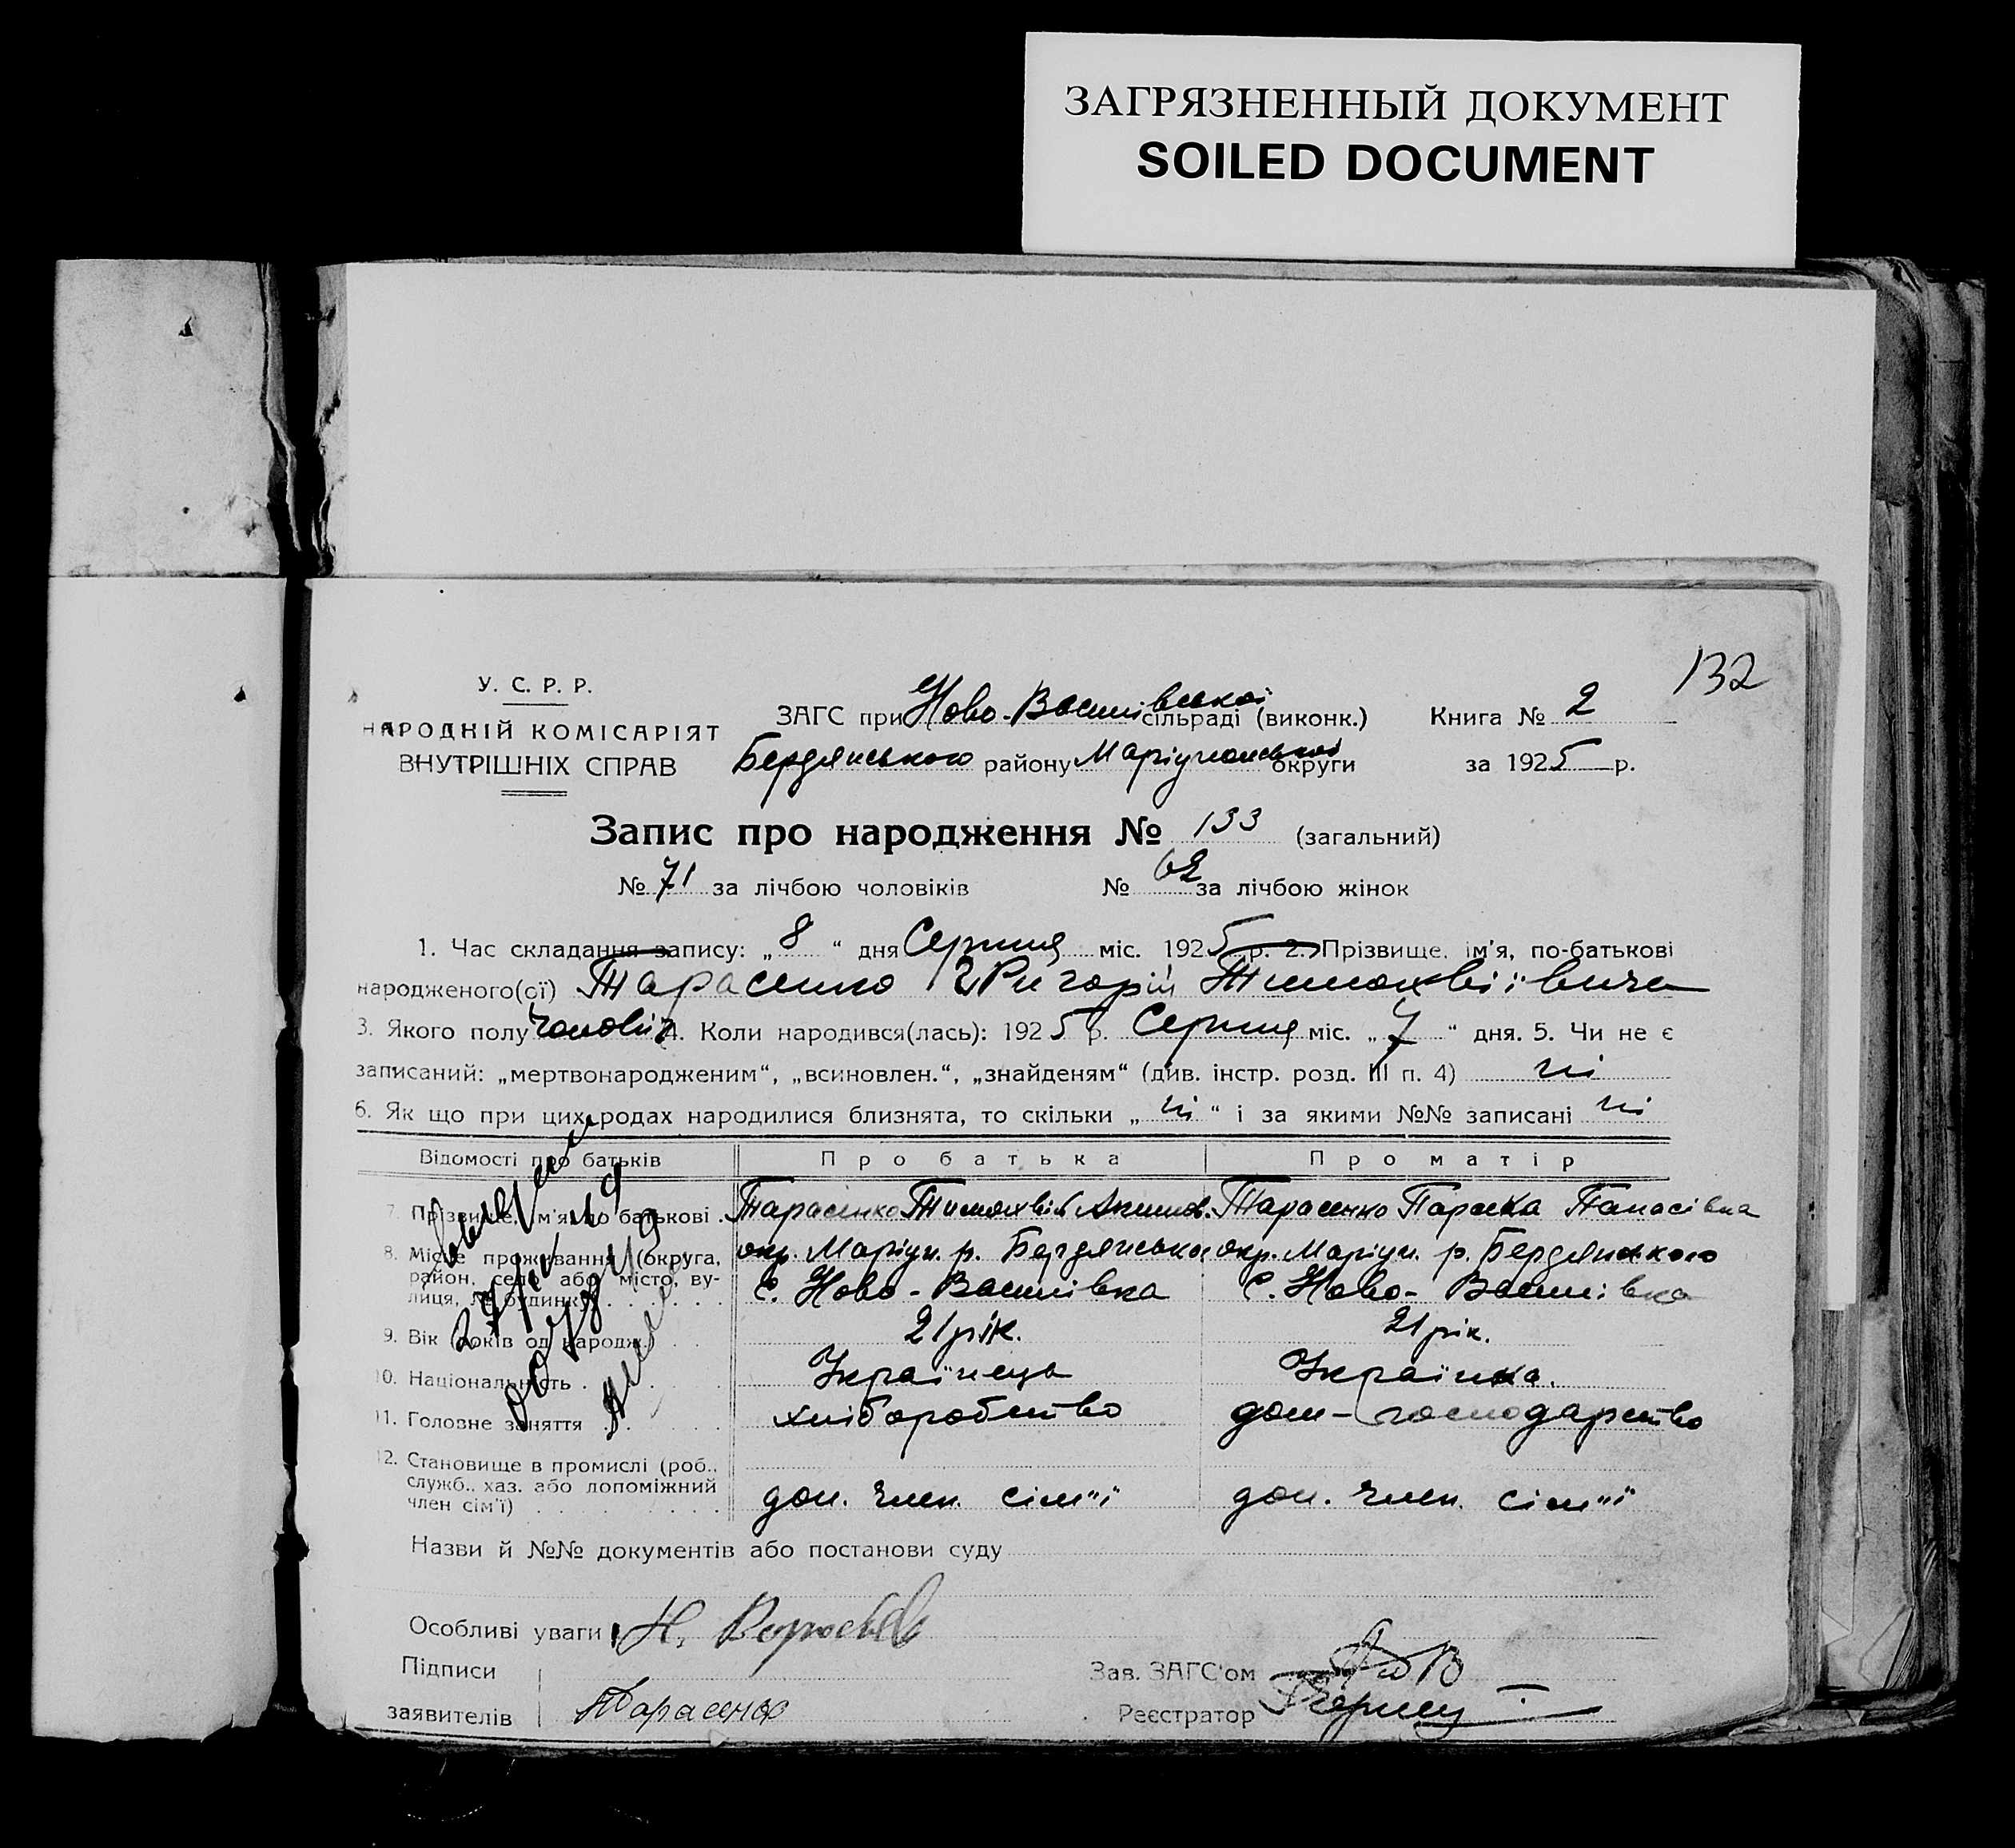 ЗАГРЯЗНЕННЫЙ ДОКУМЕНТ
SOILED DOCUMENT
132
У. С. Р. Р.
НАРОДНІЙ КОМІСАРІЯТ
ВНУТРІШНІХ СПРАВ
ЗАГС при Ново-Василівської сільраді (виконк.) Книга № 2
Бердянського району Маріупольської округи за 1925 р.
Запис про народження № 133 (загальний)
№ 71 за лічбою чоловіків № 62 за лічбою жінок
1. Час складання запису: „ 8 “ дня Серпня міс. 1925 р. 2. Прізвище, ім'я, по-батькові
народженого(ої) Тарасенко Григорій Тимохвіївича
3. Якого полу чоловіч 4. Коли народився(лась): 1925 р. Серпня міс. „ 7 “ дня. 5. Чи не є
записаний: „мертвонародженим“, „всиновлен.“, „знайденям“ (див. інстр. розд. III п. 4) ні
6. Як що при цих родах народилися близнята, то скільки „ ні “ і за якими №№ записані ні
Відомості про батьків Про батька Про матір
7. Прізвище, ім'я по батькові Тарасенко Тимохвій Акимов. Тарасенко Параска Панасівна
8. Місце проживання (округа, район, село або місто, вулиця, № будинку) окр. Маріуп. р. Бердянського окр. Маріуп. р. Бердянського
с. Ново-Василівка с. Ново-Василівка
9. Вік (років од народж.) 21 рік. 21 рік.
10. Національність Українець Українка.
11. Головне заняття хліборобство дом-господарство
12. Становище в промислі (роб., служб., хаз. або допоміжний член сім'ї) доп. член. сім"ї доп. член. сім"ї
Назви й №№ документів або постанови суду
Особливі уваги Н.
Підписи
заявителів Тарасенко
Зав. ЗАГС'ом
Реєстратор